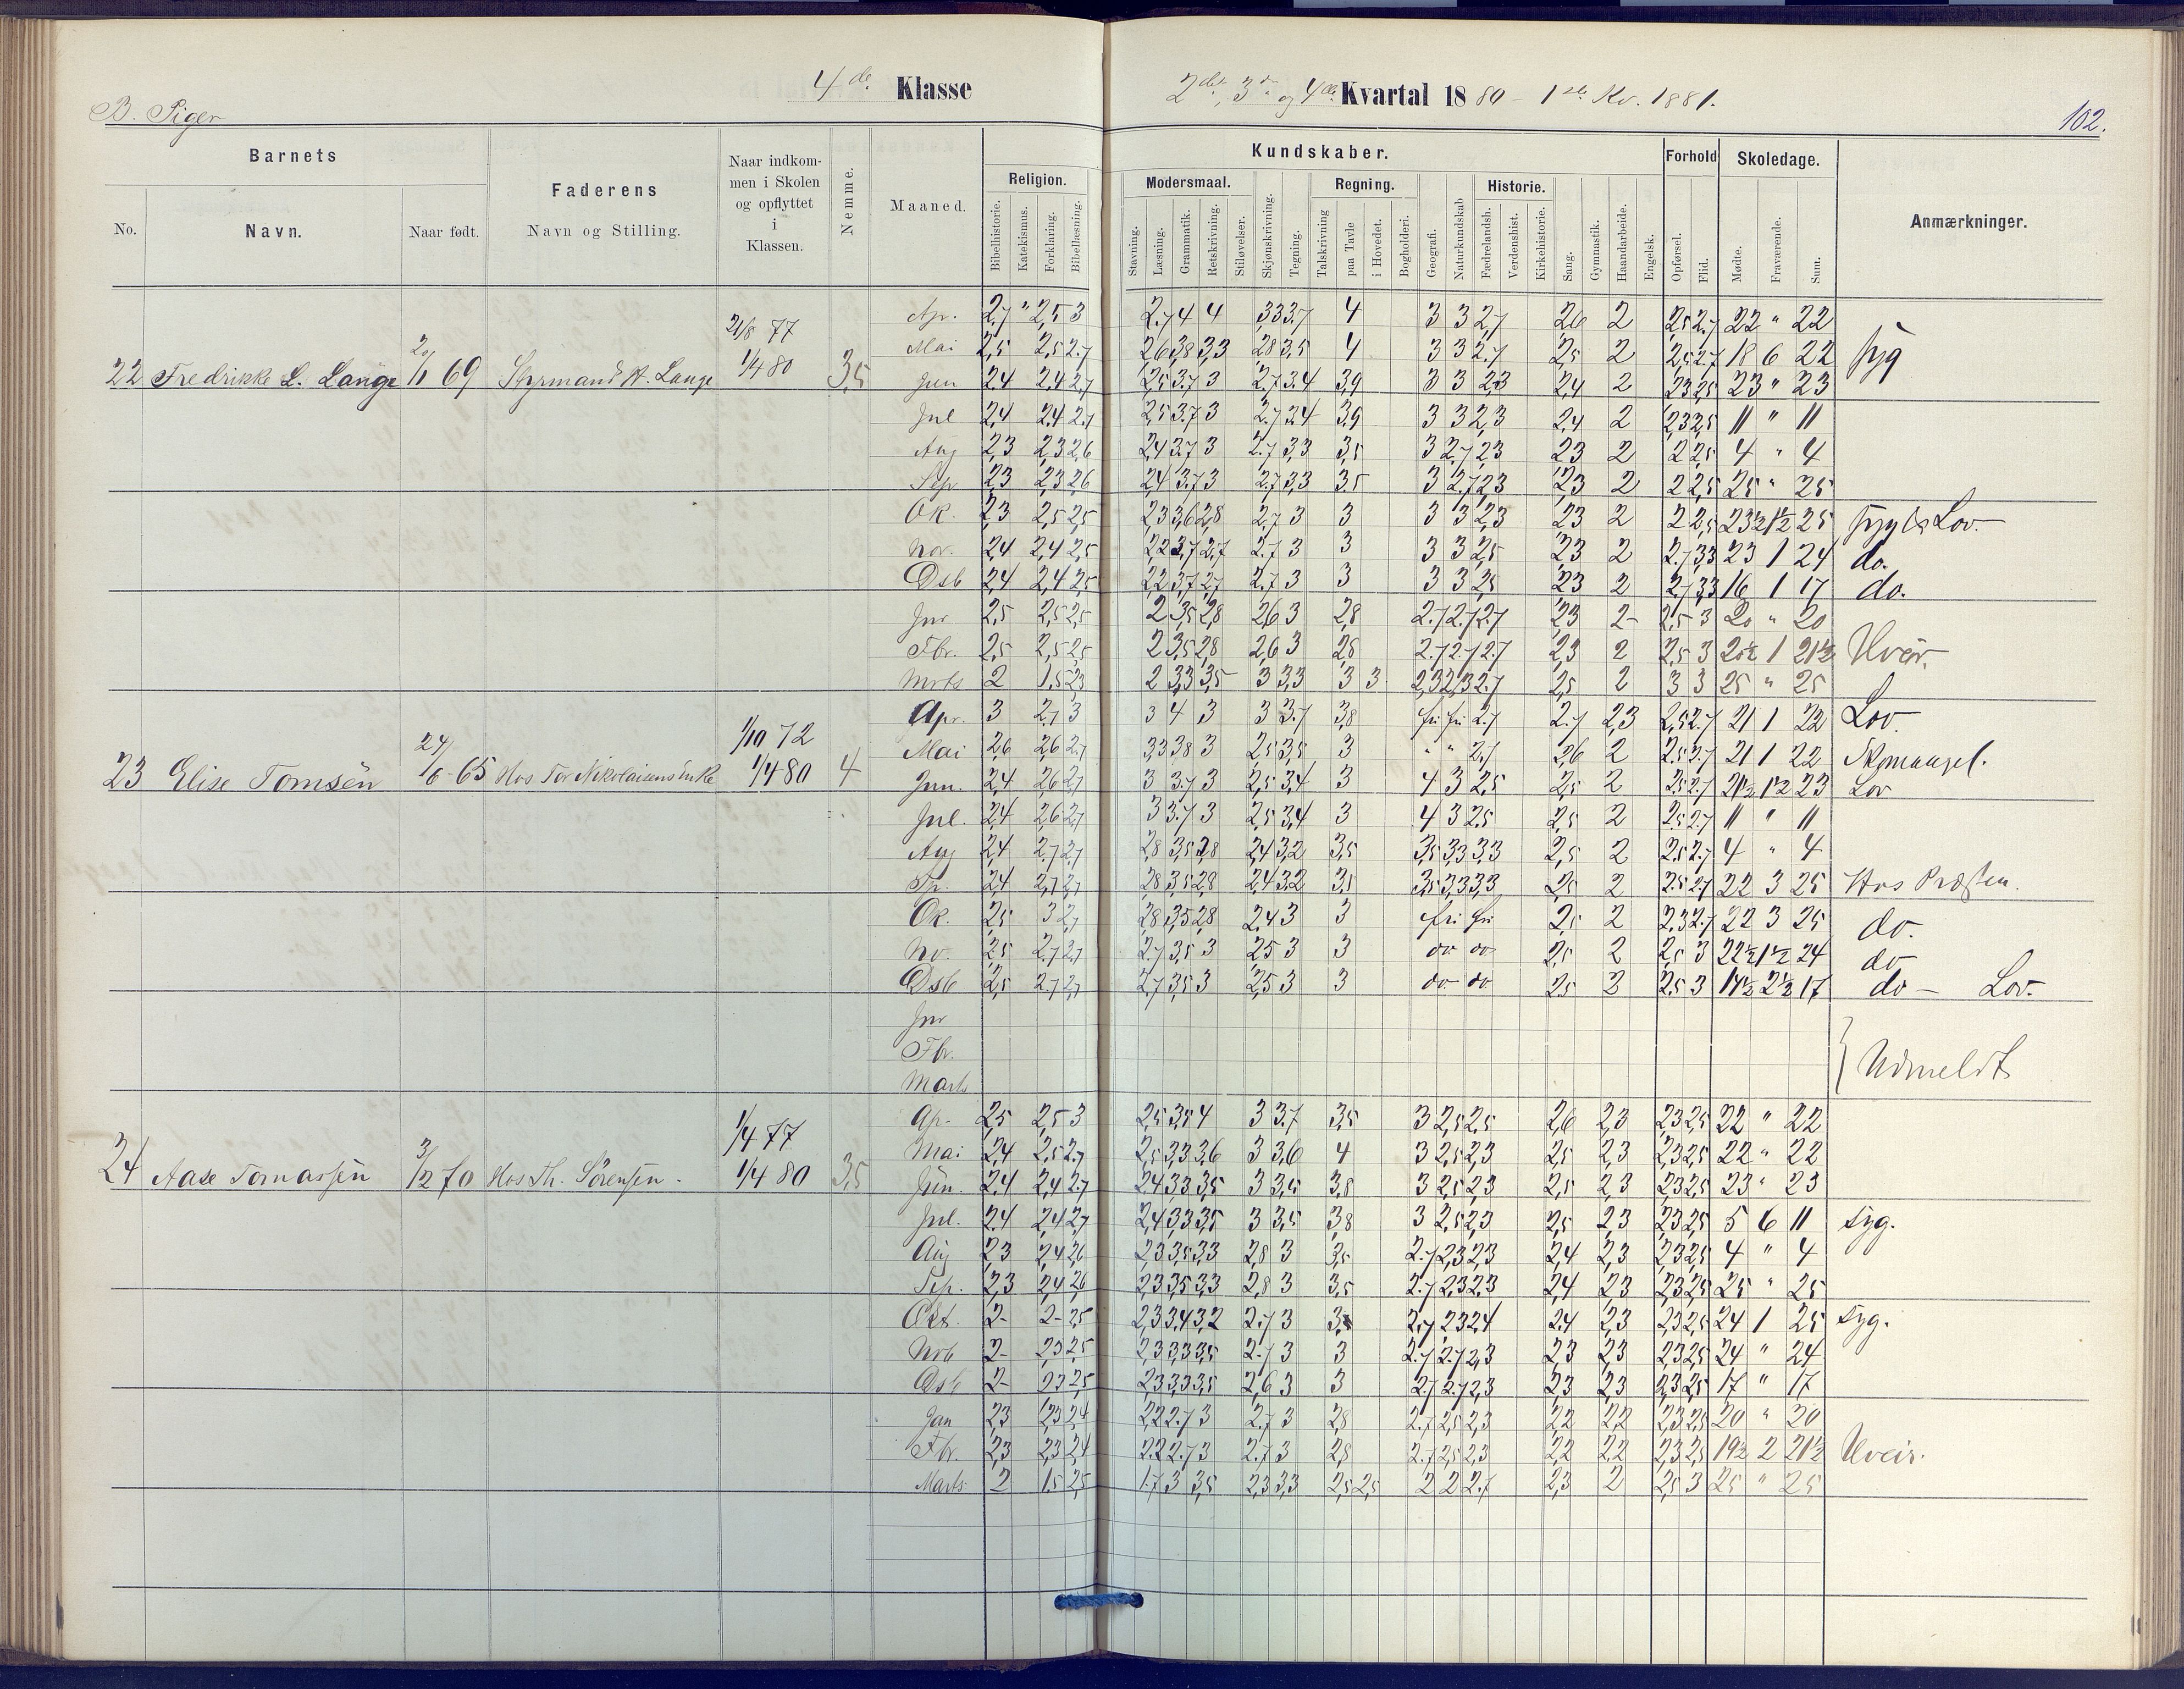 B. Piger
4de Klasse
2det, 3die og 4de Kvartal 1880 - 1ste Kv. 1881.
102.
Barnets
No.
Navn.
Naar født.
Faderens
Navn og Stilling.
Naar indkom-
men i Skolen
og opflyttet
i
Klassen.
Nemme.
Maaned.
Kundskaber.
Religion.
Bibelhistorie.
Katekismus.
Forklaring.
Bibellæsning.
Modersmaal.
Stavning.
Læsning.
Grammatik.
Retskrivning.
Stiløvelser.
Skjønskrivning.
Tegning.
Regning.
Talskrivning
paa Tavle
i Hovedet.
Bogholderi.
Geografi.
Naturkundskab
Historie.
Fædrelandsh.
Verdenshist.
Kirkehistorie.
Sang.
Gymnastik.
Haandarbeide.
Engelsk.
Forhold
Opførsel.
Flid.
Skoledage.
Mødte.
Fraværende.
Sum.
Anmærkninger.
22 Fredrikke L. Lange 20/1 69 Styrmand A. Lange 21/8 77 1/4 80 3,5
Apr. 2,7 " 2,5 3 2,7 4 4 3,3 3,7 4 3 3 2,7 2,6 2 2,5 2,7 22 " 22
Mai 2,5 2,5 2,7 2,6 3,8 3,3 2,8 3,5 4 3 3 2,7 2,5 2 2,5 2,7 18 6 22 syg
Jun 2,4 2,4 2,7 2,5 3,7 3 2,7 3,4 3,9 3 3 2,3 2,4 2 2,3 2,5 23 " 23
Jul 2,4 2,4 2,7 2,5 3,7 3 2,7 3,4 3,9 3 3 2,3 2,4 2 2,3 2,5 11 " 11
Aug 2,3 2,3 2,6 2,4 3,7 3 2,7 3,3 3,5 3 2,7 2,3 2,3 2 2 2,5 4 " 4
Sep 2,3 2,3 2,6 2,4 3,7 3 2,7 3,3 3,5 3 2,7 2,3 2,3 2 2 2,5 25 " 25
Ok. 2,3 2,5 2,5 2,3 3,6 2,8 2,7 3 3 3 3 2,3 2,3 2 2 2,5 23½ 1½ 25 syg & Lov.
Nov. 2,4 2,4 2,5 2,2 3,7 2,7 2,7 3 3 3 3 2,5 2,3 2 2,7 3,3 23 1 24 do.
Dsb 2,4 2,4 2,5 2,2 3,7 2,7 2,7 3 3 3 3 2,5 2,3 2 2,7 3,3 16 1 17 do.
Jnr 2,5 2,5 2,5 2 3,5 2,8 2,6 3 2,8 2,7 2,7 2,7 2,3 2 2,5 3 20 " 20
Fbr. 2,5 2,5 2,5 2 3,5 2,8 2,6 3 2,8 2,7 2,7 2,7 2,3 2 2,5 3 20½ 1 21½ Uveir.
Mrts 2 1,5 2,3 2 3,3 3,5 3 3,3 3 3 2,3 2,3 2,7 2,5 2 3 3 25 " 25
23 Elise Tomsen 24/6 65 Hos Tor Nikolaisens Enke 1/10 72 1/4 80 4
Apr. 3 2,7 3 3 4 3 3 3,7 3,8 fri fri 2,7 2,7 2,3 2,5 2,7 21 1 22 Lov.
Mai 2,6 2,6 2,7 3,3 3,8 3 2,5 3,5 3 " " 2,7 2,6 2 2,5 2,7 21 1 22 Skomangel.
Jun. 2,4 2,6 2,7 3 3,7 3 2,5 3,4 3 4 3 2,5 2,5 2 2,5 2,7 21½ 1½ 23 Lov
Jul. 2,4 2,6 2,7 3 3,7 3 2,5 3,4 3 4 3 2,5 2,5 2 2,5 2,7 11 " 11
Aug 2,4 2,7 2,7 2,8 3,5 2,8 2,4 3,2 3,5 3,5 3,3 3,3 2,5 2 2,5 2,7 4 " 4
Sp. 2,4 2,7 2,7 2,8 3,5 2,8 2,4 3,2 3,5 3,5 3,3 3,3 2,5 2 2,5 2,7 22 3 25 Hos Præsten.
Ok. 2,5 3 2,7 2,8 3,5 2,8 2,4 3 3 fri fri 2,5 2 2,3 2,7 22 3 25 do.
No. 2,5 2,7 2,7 2,7 3,5 3 2,5 3 3 do do 2,5 2 2,5 3 22½ 1½ 24 do
Dsb 2,5 2,7 2,7 2,7 3,5 3 2,5 3 3 do do 2,5 2 2,5 3 14½ 2½ 17 do - Lov.
Jnr
Fbr.
Marts
Udmeldt
24 Aase Tomassen 3/12 70 Hos Th. Sörensen. 1/4 77 1/4 80 3,5
Ap. 2,5 2,5 3 2,5 3,5 4 3 3,7 3,5 3 2,5 2,5 2,6 2,3 2,3 2,5 22 " 22
Mai 2,4 2,5 2,7 2,5 3,3 3,6 3 3,6 4 3 2,5 2,3 2,5 2,3 2,3 2,5 22 " 22
Jun. 2,4 2,4 2,7 2,4 3,3 3,5 3 3,5 3,8 3 2,5 2,3 2,5 2,3 2,3 2,5 23 " 23
Jul. 2,4 2,4 2,7 2,4 3,3 3,5 3 3,5 3,8 3 2,5 2,3 2,5 2,3 2,3 2,5 5 6 11 syg.
Aug 2,3 2,4 2,6 2,3 3,5 3,3 2,8 3 3,5 2,7 2,3 2,3 2,4 2,3 2,3 2,5 4 " 4
Sep. 2,3 2,4 2,6 2,3 3,5 3,3 2,8 3 3,5 2,7 2,3 2,3 2,4 2,3 2,3 2,5 25 " 25
Okt. 2- 2- 2,5 2,3 3,4 3,2 2,7 3 2,7 2,3 2,4 2,4 2,3 2,3 2,5 24 1 25 syg.
Nvb 2- 2,3 2,5 2,3 3,3 3,5 2,7 3 3 2,7 2,7 2,3 2,3 2,3 2,3 2,5 24 " 24
Dsb 2- 2,3 2,5 2,3 3,3 3,5 2,6 3 3 2,7 2,7 2,3 2,3 2,3 2,3 2,5 17 " 17
Jan 2,3 2,3 2,4 2,2 2,7 3 2,7 3 2,8 2,7 2,5 2,3 2,2 2,2 2,3 2,5 20 " 20
Fbr. 2,3 2,3 2,4 2,2 2,7 3 2,7 3 2,8 2,7 2,5 2,3 2,2 2,2 2,3 2,5 19½ 2 21½ Uveir.
Marts. 2 1,5 2,5 1,7 3 3,5 2,3 3,3 2,5 2,5 2 2 2,7 2,3 2 2,5 3 25 " 25